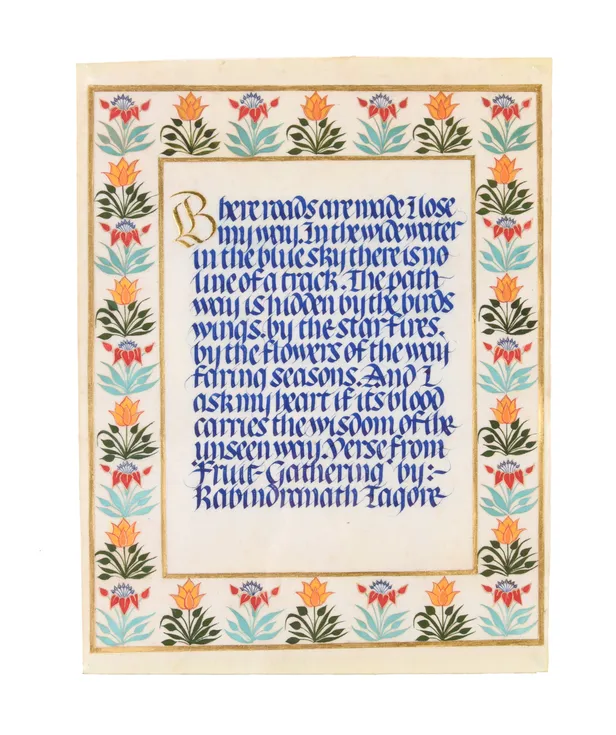 Where roads are made I lose
my way. In the wide water
in the blue sky there is no
line of a track. The path
way is hidden by the birds
wings. by the star fires.
by the flowers of the way
faring seasons. And I
ask my heart if its blood
carries the wisdom of the
unseen way. Verse from
Fruit-Gathering by:-
Rabindranath Tagore